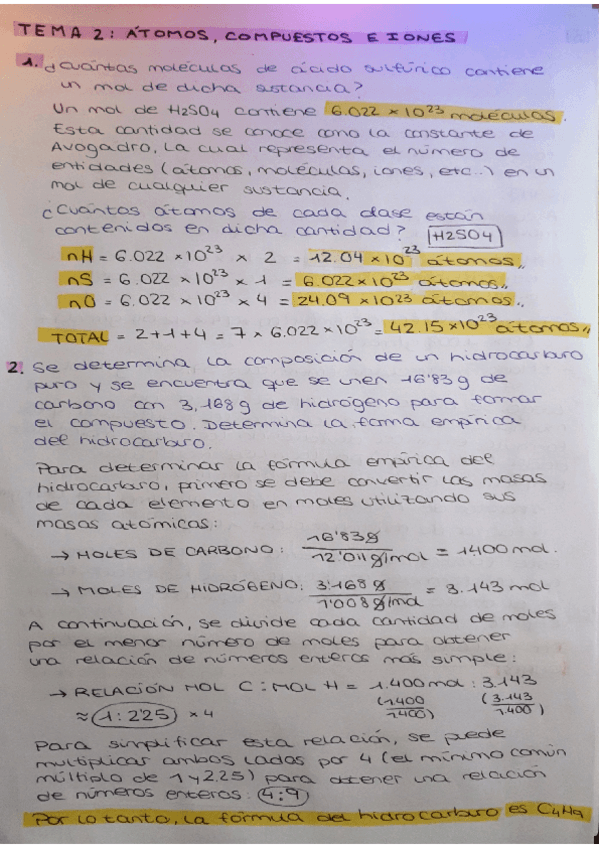 TEMA 2: ÁTOMOS, COMPUESTOS E IONES
1. ¿Cuántas moléculas de ácido sulfúrico contiene
un mol de dicha sustancia?
Un mol de H2SO4 contiene 6.022 × 10²³ moléculas.
Esta cantidad se conoce como la constante de
Avogadro, la cual representa el número de
entidades (átomos, moléculas, iones, etc..) en un
mol de cualquier sustancia.
¿Cuántos átomos de cada clase están
contenidos en dicha cantidad? H2SO4
nH = 6.022 × 10²³ × 2 = 12.04 × 10²³ átomos,,
nS = 6.022 × 10²³ × 1 = 6.022 × 10²³ átomos,,
nO = 6.022 × 10²³ × 4 = 24.09 × 10²³ átomos,,
TOTAL = 2+1+4 = 7 × 6.022 × 10²³ = 42.15 × 10²³ átomos,,
2. Se determina la composición de un hidrocarburo
puro y se encuentra que se unen 16'83 g de
carbono con 3,168 g de hidrógeno para formar
el compuesto. Determina la forma empírica
del hidrocarburo.
Para determinar la fórmula empírica del
hidrocarburo, primero se debe convertir las masas
de cada elemento en moles utilizando sus
masas atómicas:
→ MOLES DE CARBONO: 16'83g / 12'011g/mol = 1.400 mol.
→ MOLES DE HIDRÓGENO: 3'168 g / 1'008 g/mol = 3.143 mol
A continuación, se divide cada cantidad de moles
por el menor número de moles para obtener
una relación de números enteros más simple:
→ RELACIÓN MOL C : MOL H = 1.400 mol : 3.143
(1.400 / 1.400) (3.143 / 1.400)
≈ 1 : 2'25 × 4
Para simplificar esta relación, se puede
multiplicar ambos lados por 4 (el mínimo común
múltiplo de 1 y 2.25) para obtener una relación
de números enteros: 4:9
Por lo tanto, la fórmula del hidrocarburo es C4H9